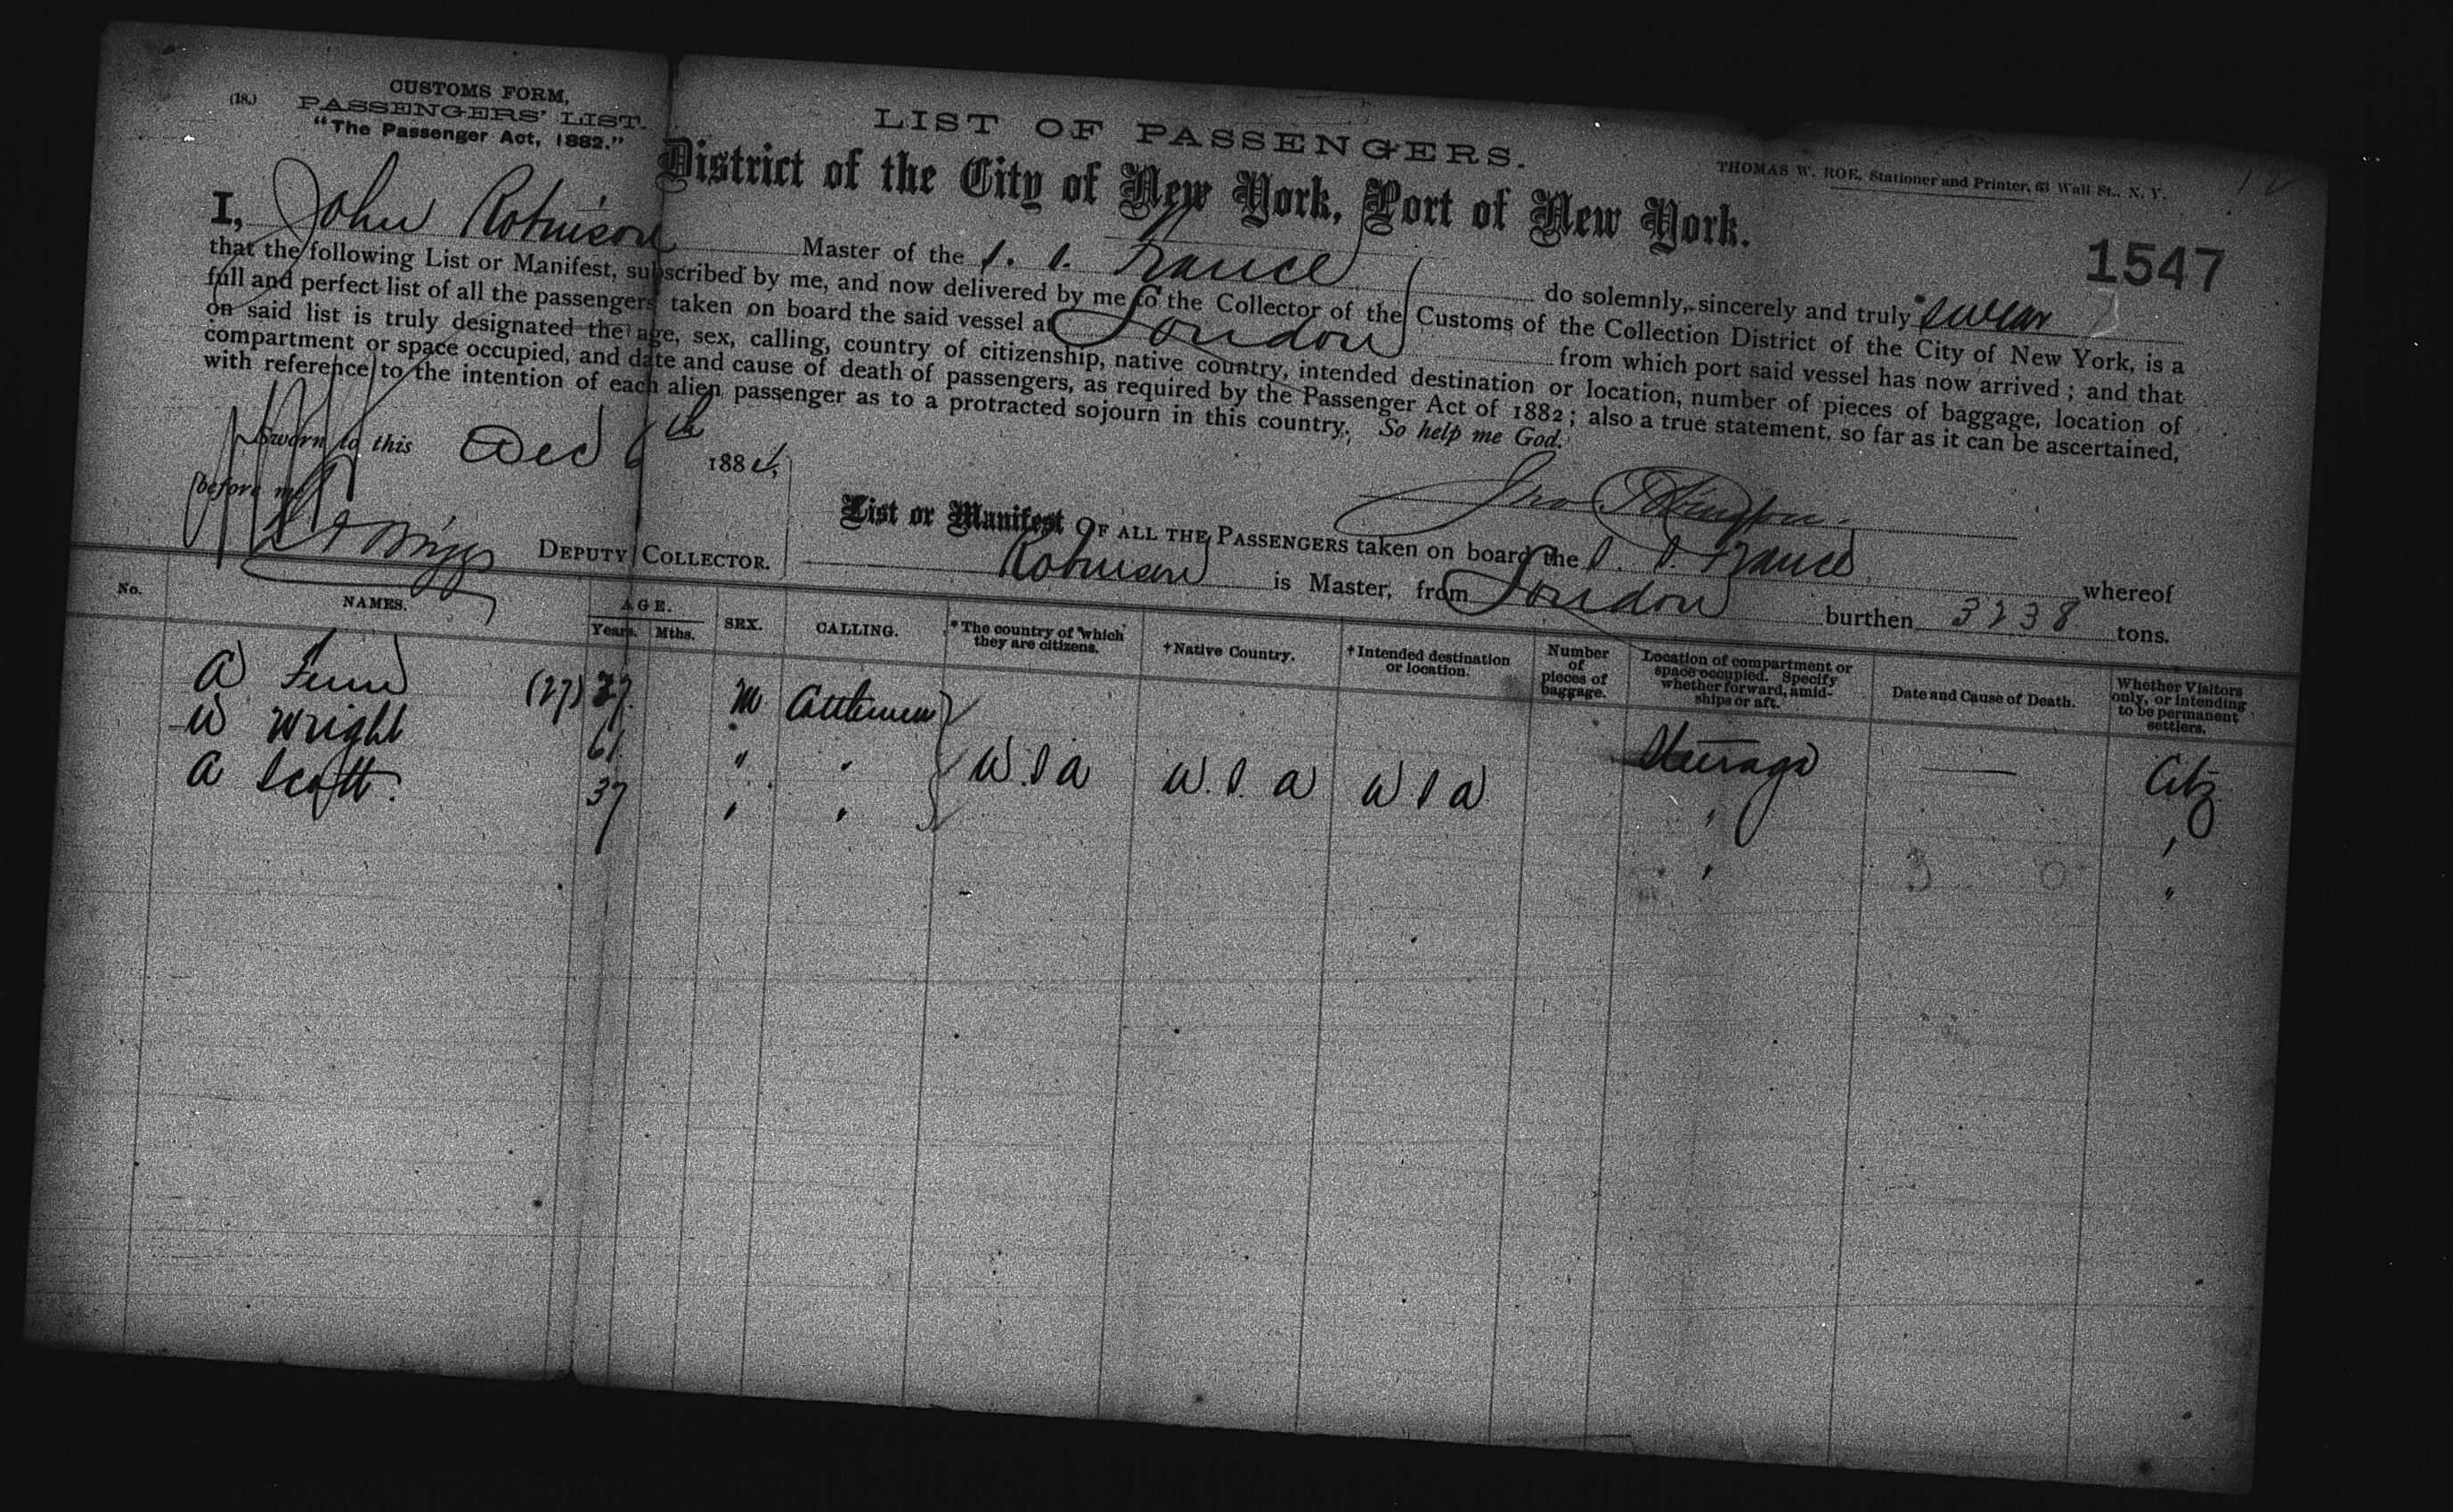 (18.)
CUSTOMS FORM,
PASSENGERS' LIST.
"The Passenger Act, 1882."
LIST OF PASSENGERS.
THOMAS W. ROE, Stationer and Printer, 63 Wall St., N. Y.
District of the City of New York, Port of New York.
1547
I, John Robinson Master of the S. S. France do solemnly, sincerely and truly swear
that the following List or Manifest, subscribed by me, and now delivered by me to the Collector of the Customs of the Collection District of the City of New York, is a
full and perfect list of all the passengers taken on board the said vessel at London from which port said vessel has now arrived; and that
on said list is truly designated the age, sex, calling, country of citizenship, native country, intended destination or location, number of pieces of baggage, location of
compartment or space occupied, and date and cause of death of passengers, as required by the Passenger Act of 1882; also a true statement, so far as it can be ascertained,
with reference to the intention of each alien passenger as to a protracted sojourn in this country. So help me God.
Sworn to this Dec 6th 1884,
before me
DEPUTY COLLECTOR.
Jno Robinson
List or Manifest OF ALL THE PASSENGERS taken on board the S. S. France whereof
Robinson is Master, from London burthen 3238 tons.
No. NAMES. AGE. Years. Mths. SEX. CALLING. *The country of which they are citizens. †Native Country. †Intended destination or location. Number of pieces of baggage. Location of compartment or space occupied. Specify whether forward, amidships or aft. Date and Cause of Death. Whether Visitors only, or intending to be permanent settlers.
A (27) 27 M Cattlemen U.S.A U.S.A U S A Steerage — Citz
W Wright 61 " " " "
A Scott. 37 " " " "
3 0